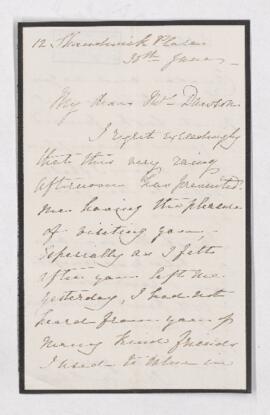 12, Shandwick Place
30th June
My dear Mrs. Dawson
I regret exceedingly
that this very rainy
afternoon has prevented
me having the pleasure
of visiting you,
especially as I felt
after you left me
yesterday, I had not
heard from you of
many kind friends
I used to know in